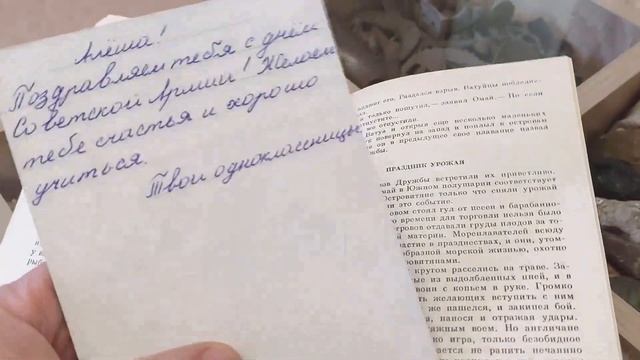 Алёша!
Поздравляем тебя с днём
Советской Армии! Желаем
тебе счастья и хорошо
учиться.
Твои одноклассницы
его. Раздался взрыв. Ватуйцы
только пошутил,— заявил Омай.— Но если
отпустил.
Ватуа и открыв еще несколько маленьких
повернул на запад и поплыл к островам
он в предыдущее свое плавание назвал
ПРАЗДНИК УРОЖАЯ
Дружбы встретили их приветливо.
май в Южном полушарии соответствует
Островитяне только что сняли урожай
это событие.
стоял гул от песен и
времени для торговли нельзя было
отдавали груды плодов за
материи. Мореплавателей всюду
в празднествах, и они,
морской жизнью, охотно
кругом расселись на траве.
из выдолбленных пней, и в
с копьем в руке. Громко
желающих вступить с ним
же нашелся, и закипел бой.
нанося и отражая удары.
воем. Но англичане
игра, только безобидное
не ранить нечаянно